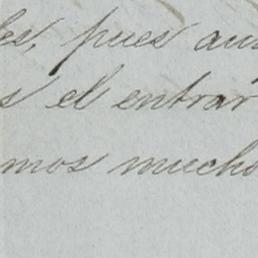 les, pues aun
s el entrar
mos mucho